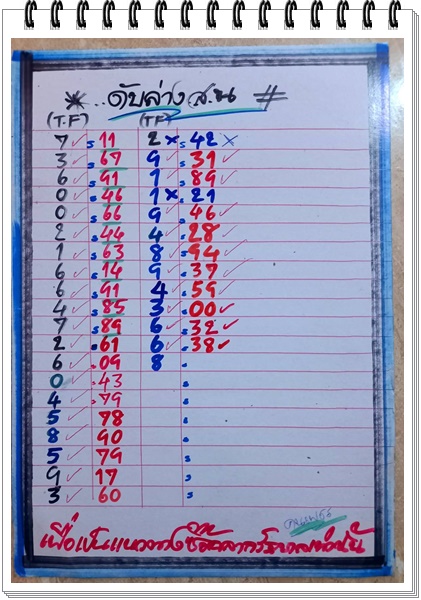 * ..ดับล่าง ส.น #
(T.F) (T.F)
7 ✓ 11 2 × 42 ×
3 ✓ 67 9 ✓ 31 ✓
6 ✓ 91 1 ✓ 89 ✓
0 ✓ 46 1 × 21
0 ✓ 66 9 ✓ 46 ✓
2 ✓ 44 4 ✓ 28 ✓
1 ✓ 63 8 ✓ 94 ✓
6 ✓ 14 9 ✓ 37 ✓
6 ✓ 91 4 ✓ 59 ✓
4 ✓ 85 3 ✓ 00 ✓
7 ✓ 89 6 ✓ 32 ✓
2 ✓ 61 6 ✓ 38 ✓
6 ✓ 09 8
0 ✓ 43
4 ✓ 79
5 ✓ 78
8 ✓ 90
5 ✓ 79
9 ✓ 17
3 ✓ 60
เพื่อเป็นแนวทาง